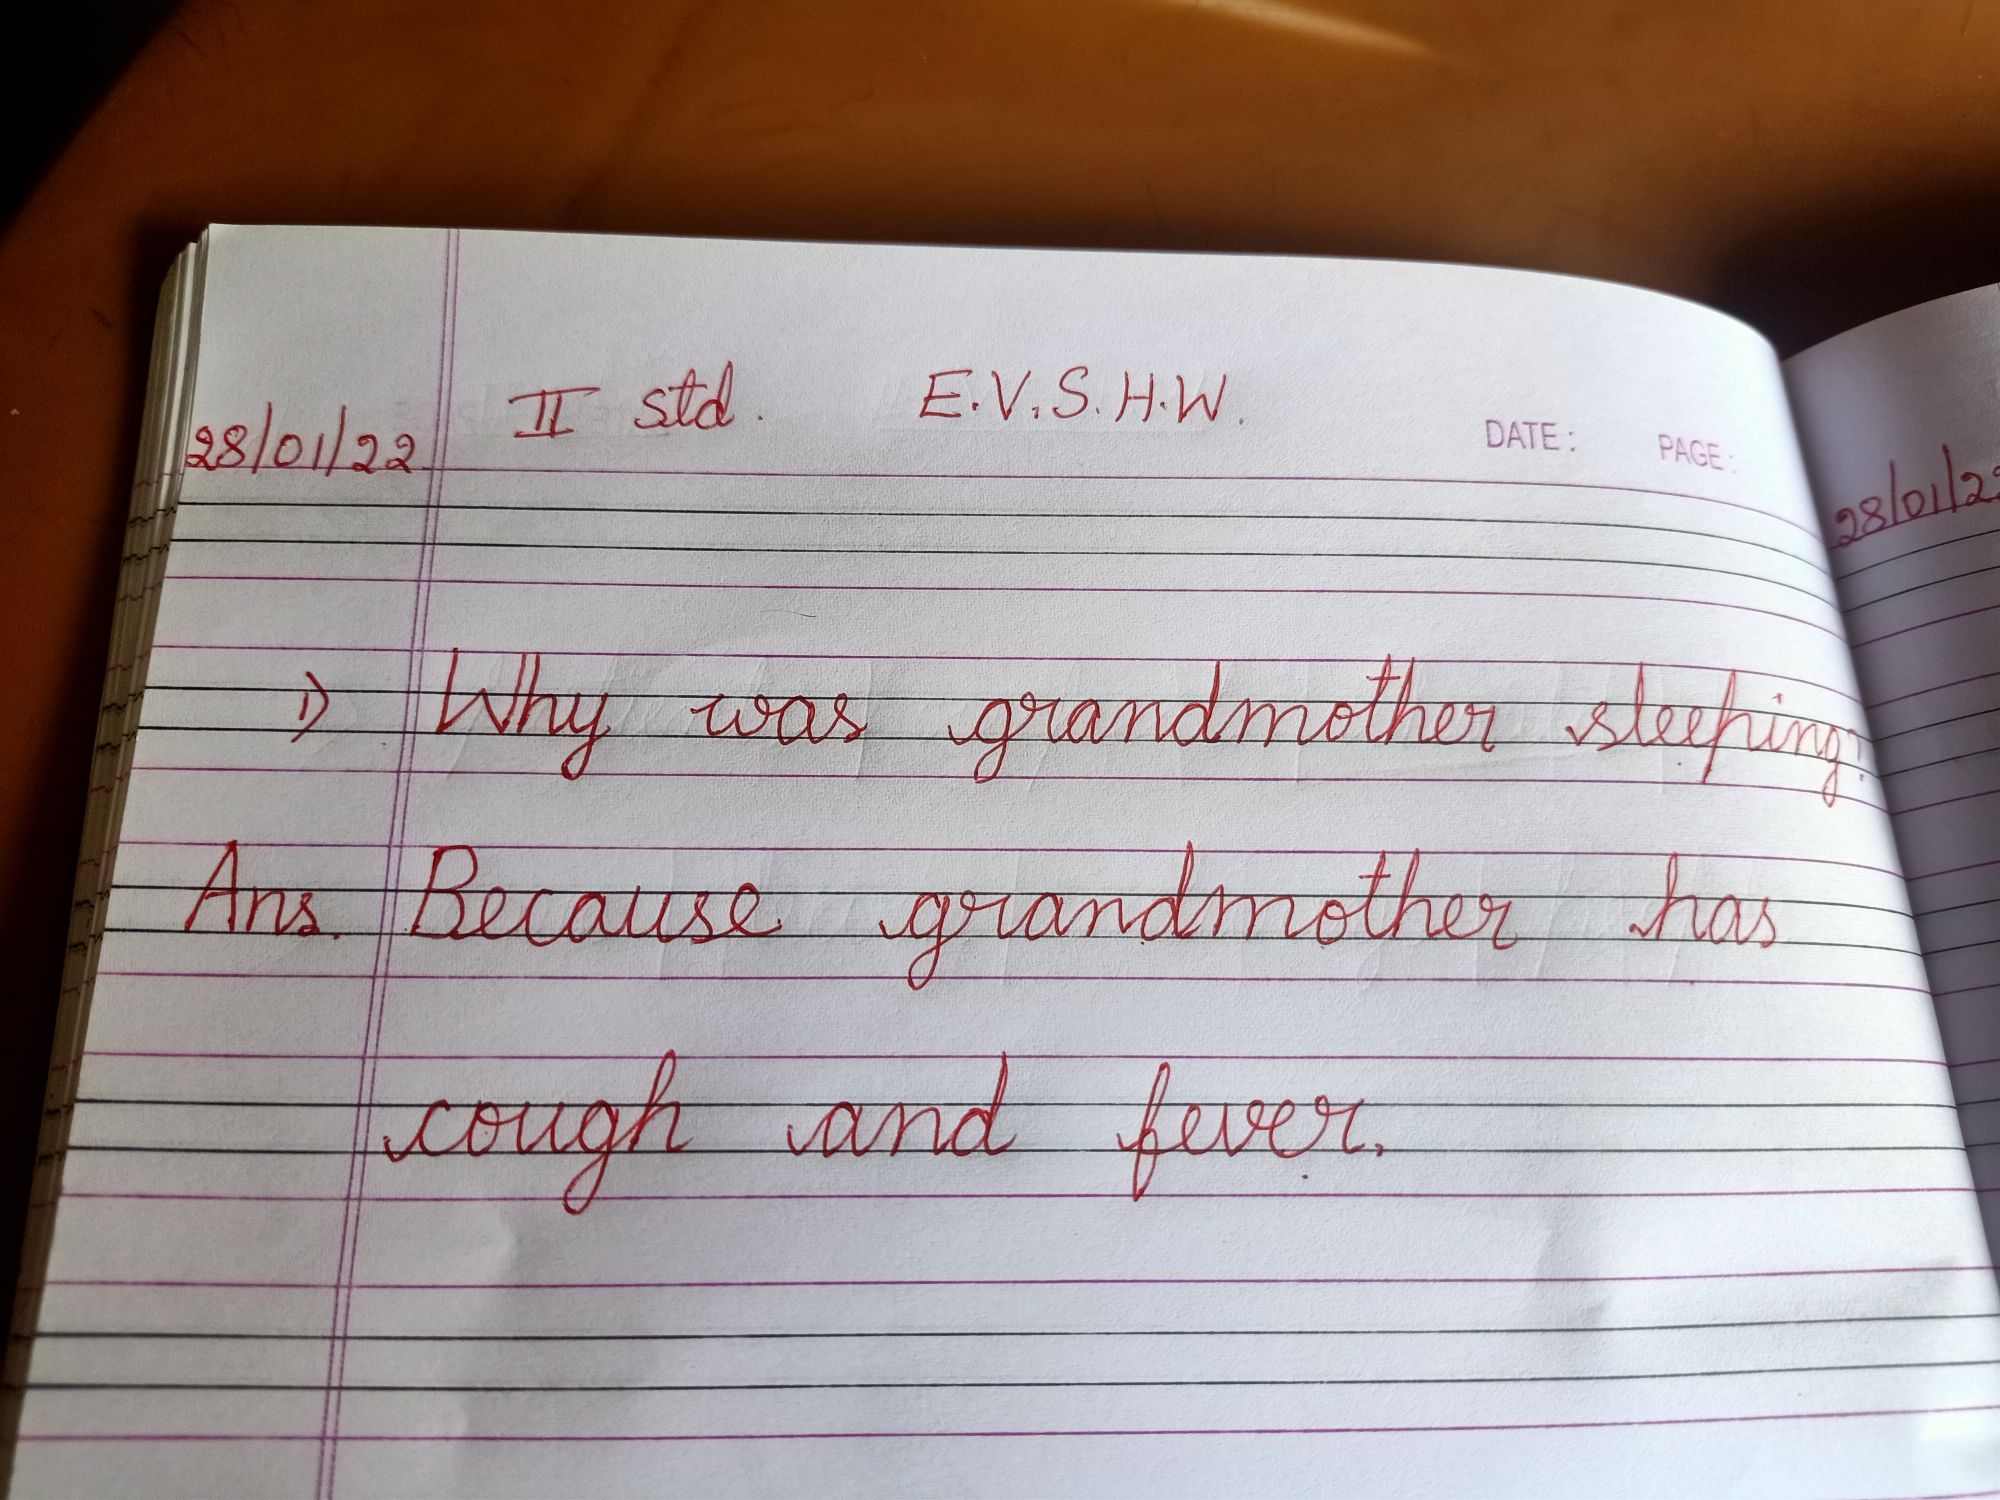 II std. E.V.S. H.W.
28/01/22
DATE: PAGE:
28/01/22
1) Why was grandmother sleeping?
Ans. Because grandmother has
cough and fever.